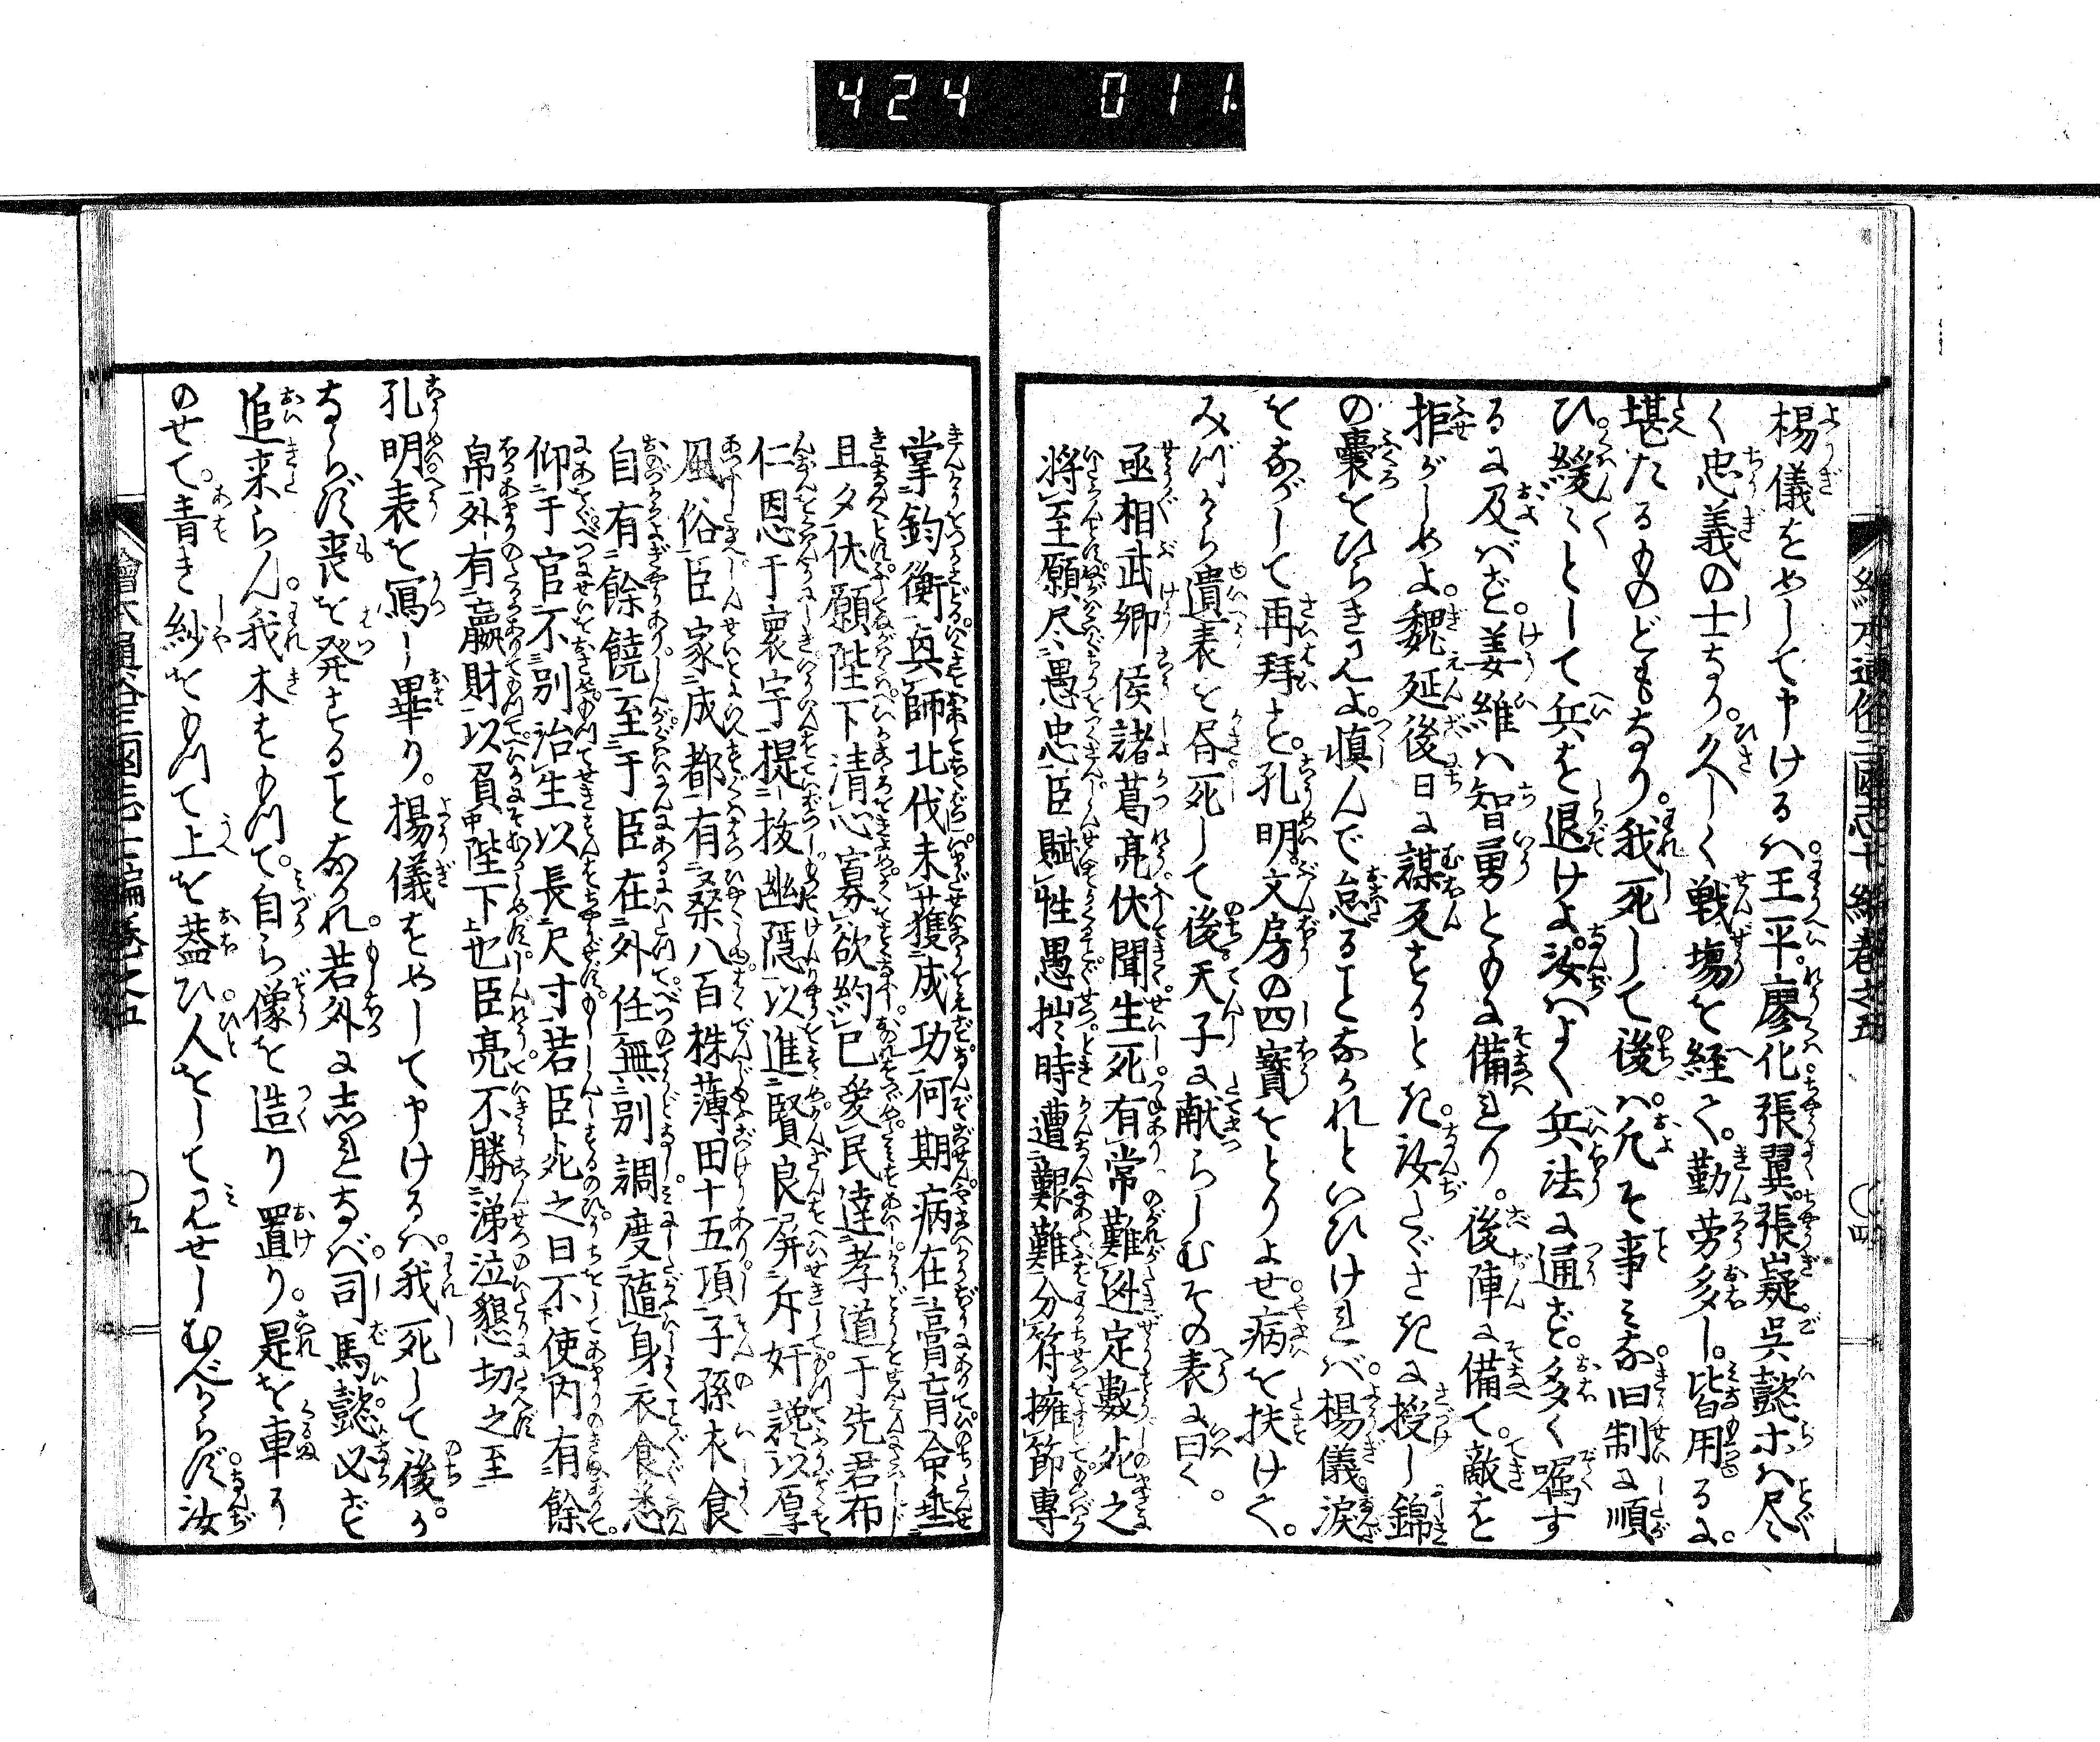 424 011
楊儀をめして申けるハ王平。廖化張翼張嶷。呉懿ホハ尽〻
く忠義の士なり。久しく戦場を経て。勤労多し。皆用るに。
堪たるものどもなり。我死して後ハ。凡そ事みな旧制に順
ひ。緩〻として兵を退けよ。汝ハよく兵法に通ず。多く嘱す
るに及ばず。姜維ハ智勇ともに備れり。後陣に備て。敵を
拒がしめよ。魏延後日に謀反するとき。汝にさきに授し錦
の嚢をひらきみよ。慎んで怠ることなかれといひけれバ。楊儀涙
をながして再拜す。孔明文房の四寳をとりよせ。病を扶けて。
みづから遺表を昏死して後。天子に献らしむその表に曰く。
丞相武卿侯諸葛亮伏聞生死有常難逃定數死之
將至願尽愚忠臣賦性愚拙時遭艱難分符擁節專
掌鈞衡與師北伐未獲成功何期病在膏肓命垂
旦夕伏願陛下清心寡欲約己愛民達孝道于先君布
仁恩于寰宇提抜幽隠以進賢良屏斥奸讒以厚
風俗臣家成都有桑八百株薄田十五頃子孫衣食
自有餘饒至于臣在外任無別調度隨身衣食悉
仰于官不別治生以長尺寸若臣死之日不使内有餘
帛外有嬴財以負陛下也臣亮不勝涕泣懇切之至
孔明表を寫し畢り。揚儀をめして申けるハ。我死して後。かな
ならず喪を発することなかれ。若外に志れなバ。司馬懿必ず
追来らん。我木をもつて。自ら像を造り置り。是を車に
のせて。青き紗をもつて上を葢ひ。人をしてみせしむべからず。汝